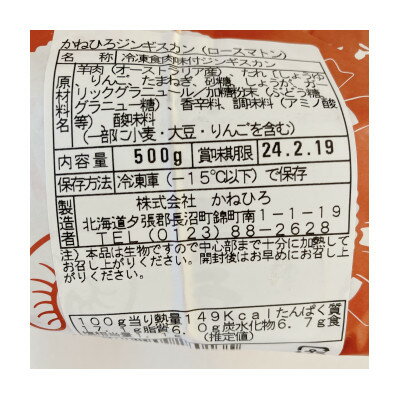 かねひろジンギスカン(ロースマトン)
名 称 冷凍食肉味付ジンギスカン
原材料名 羊肉(オーストラリア産) たれ[しょうゆ
りんご、たまねぎ、砂糖、しょうが、ガー
リックグラニュール/加糖分末(ぶどう糖、
グラニュー糖)、香辛料、調味料(アミノ酸
等) 酸味料
(一部に小麦・大豆・りんごを含む)
内容量 500g 賞味期限 24.2.19
保存方法 冷凍庫(-15℃以下)で保存
製造者 株式会社 かねひろ
北海道夕張郡長沼町錦町南1-1-19
TEL(0123)88-2628
注)本品は生物ですので中心部まで十分に加熱して
お召し上がりください。開封後はお早めにお召し上
がりください。
100g当り熱量149Kcalたんぱく質
脂質6.0g炭水化物6.7g食
(推定値)